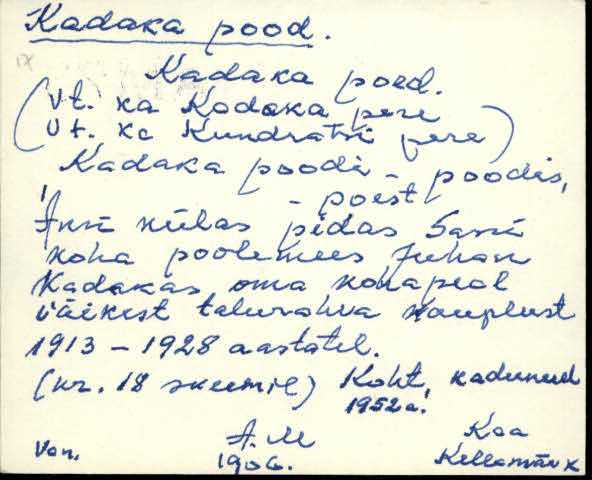 Kadaka pood.
Kadaka poed.
(Vt. ka Kadaka pere
Vt. ka Kundratsi pere)
Kadaka poodi - poodis,
- poest
külas pidas Sassi
koha poolemees Juhan
Kadakas oma kohapeal
väikest talurahva kauplust
1913 - 1928 aastatel.
(nr. 18 skeemil) Koht kadunud
1952 a.
Van. A. M Koa
1906.